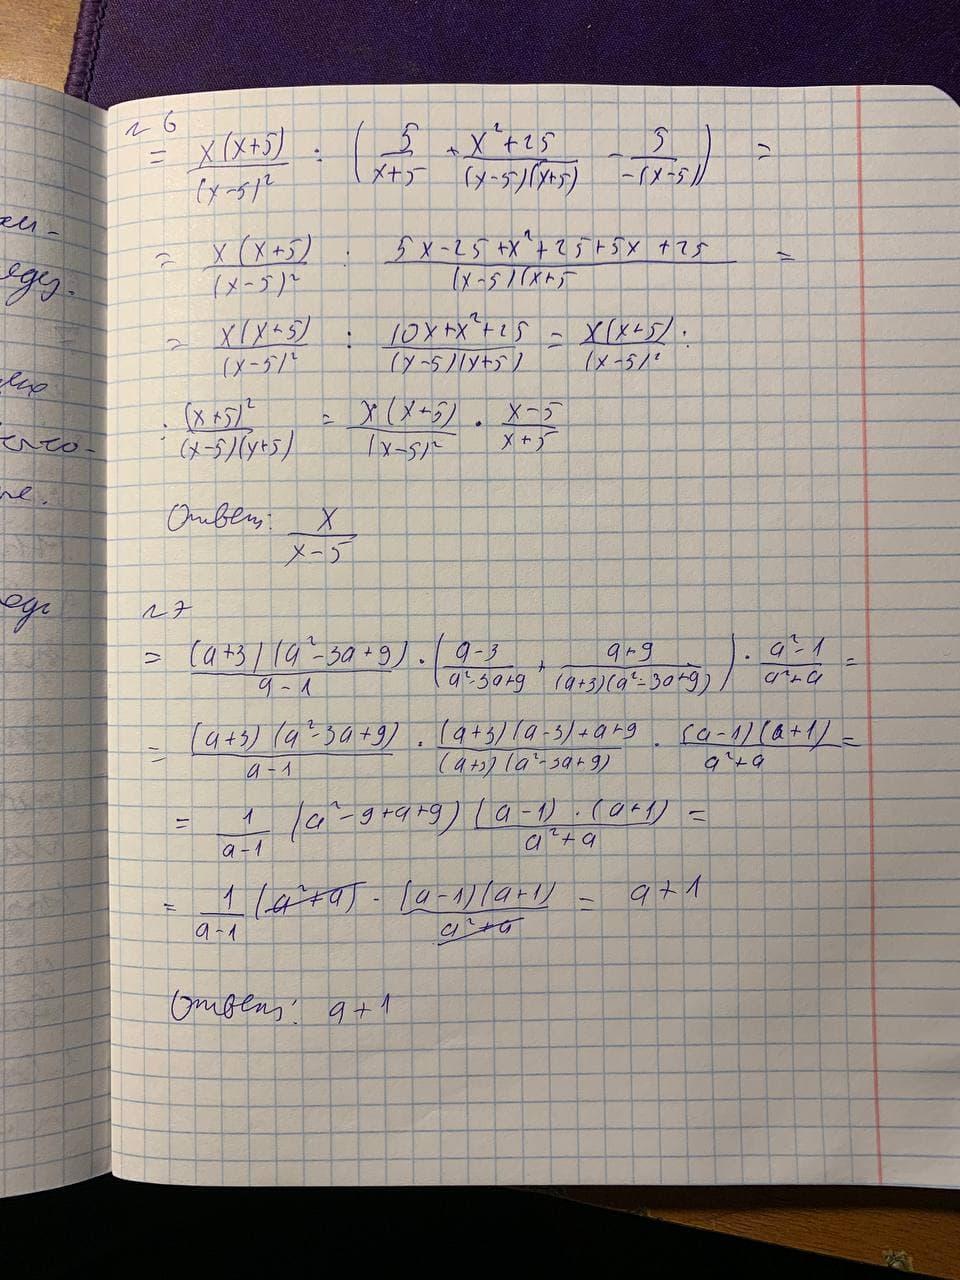 №6
= x(x+5)/(x-5)² : (5/(x+5) + (x²+25)/((x-5)(x+5)) - 5/(-(x-5))) =
= x(x+5)/(x-5)² : (5x-25+x²+25+5x+25)/((x-5)(x+5) =
= x(x+5)/(x-5)² : (10x+x²+25)/((x-5)(x+5)) = x(x+5)/(x-5)² :
: (x+5)²/((x-5)(x+5)) = x(x+5)/(x-5)² · (x-5)/(x+5)
Ответ: x/(x-5)
№7
= (a+3)(a²-3a+9)/(a-1) · ((a-3)/(a²-3a+9) + (a+9)/((a+3)(a²-3a+9))) · (a²-1)/(a²+a) =
= (a+3)(a²-3a+9)/(a-1) · ((a+3)(a-3)+a+9)/((a+3)(a²-3a+9)) · (a-1)(a+1)/(a²+a) =
= 1/(a-1) (a²-9+a+9) (a-1)·(a+1)/(a²+a) =
= 1/(a-1) (a²+a) · (a-1)(a+1)/(a²+a) = a+1
Ответ: a+1